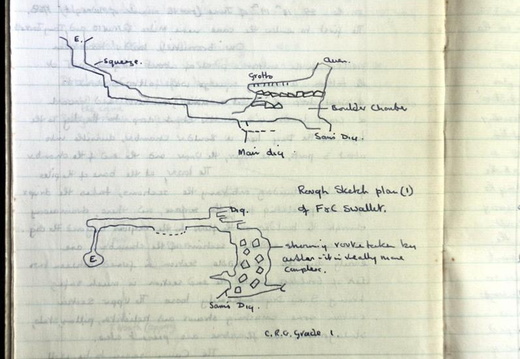 E.
Squeeze.
Grotto
Aven.
Boulder Chamber
Sam's Dig.
Main dig
Rough Sketch plan (1)
of F&C Swallet.
Dig.
showing route taken by
author - it is really more
complex.
E
Sam's Dig.
C.R.G. Grade 1.